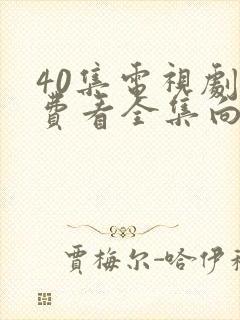 40集電視劇
費看全集向
賈梅尔-哈伊科